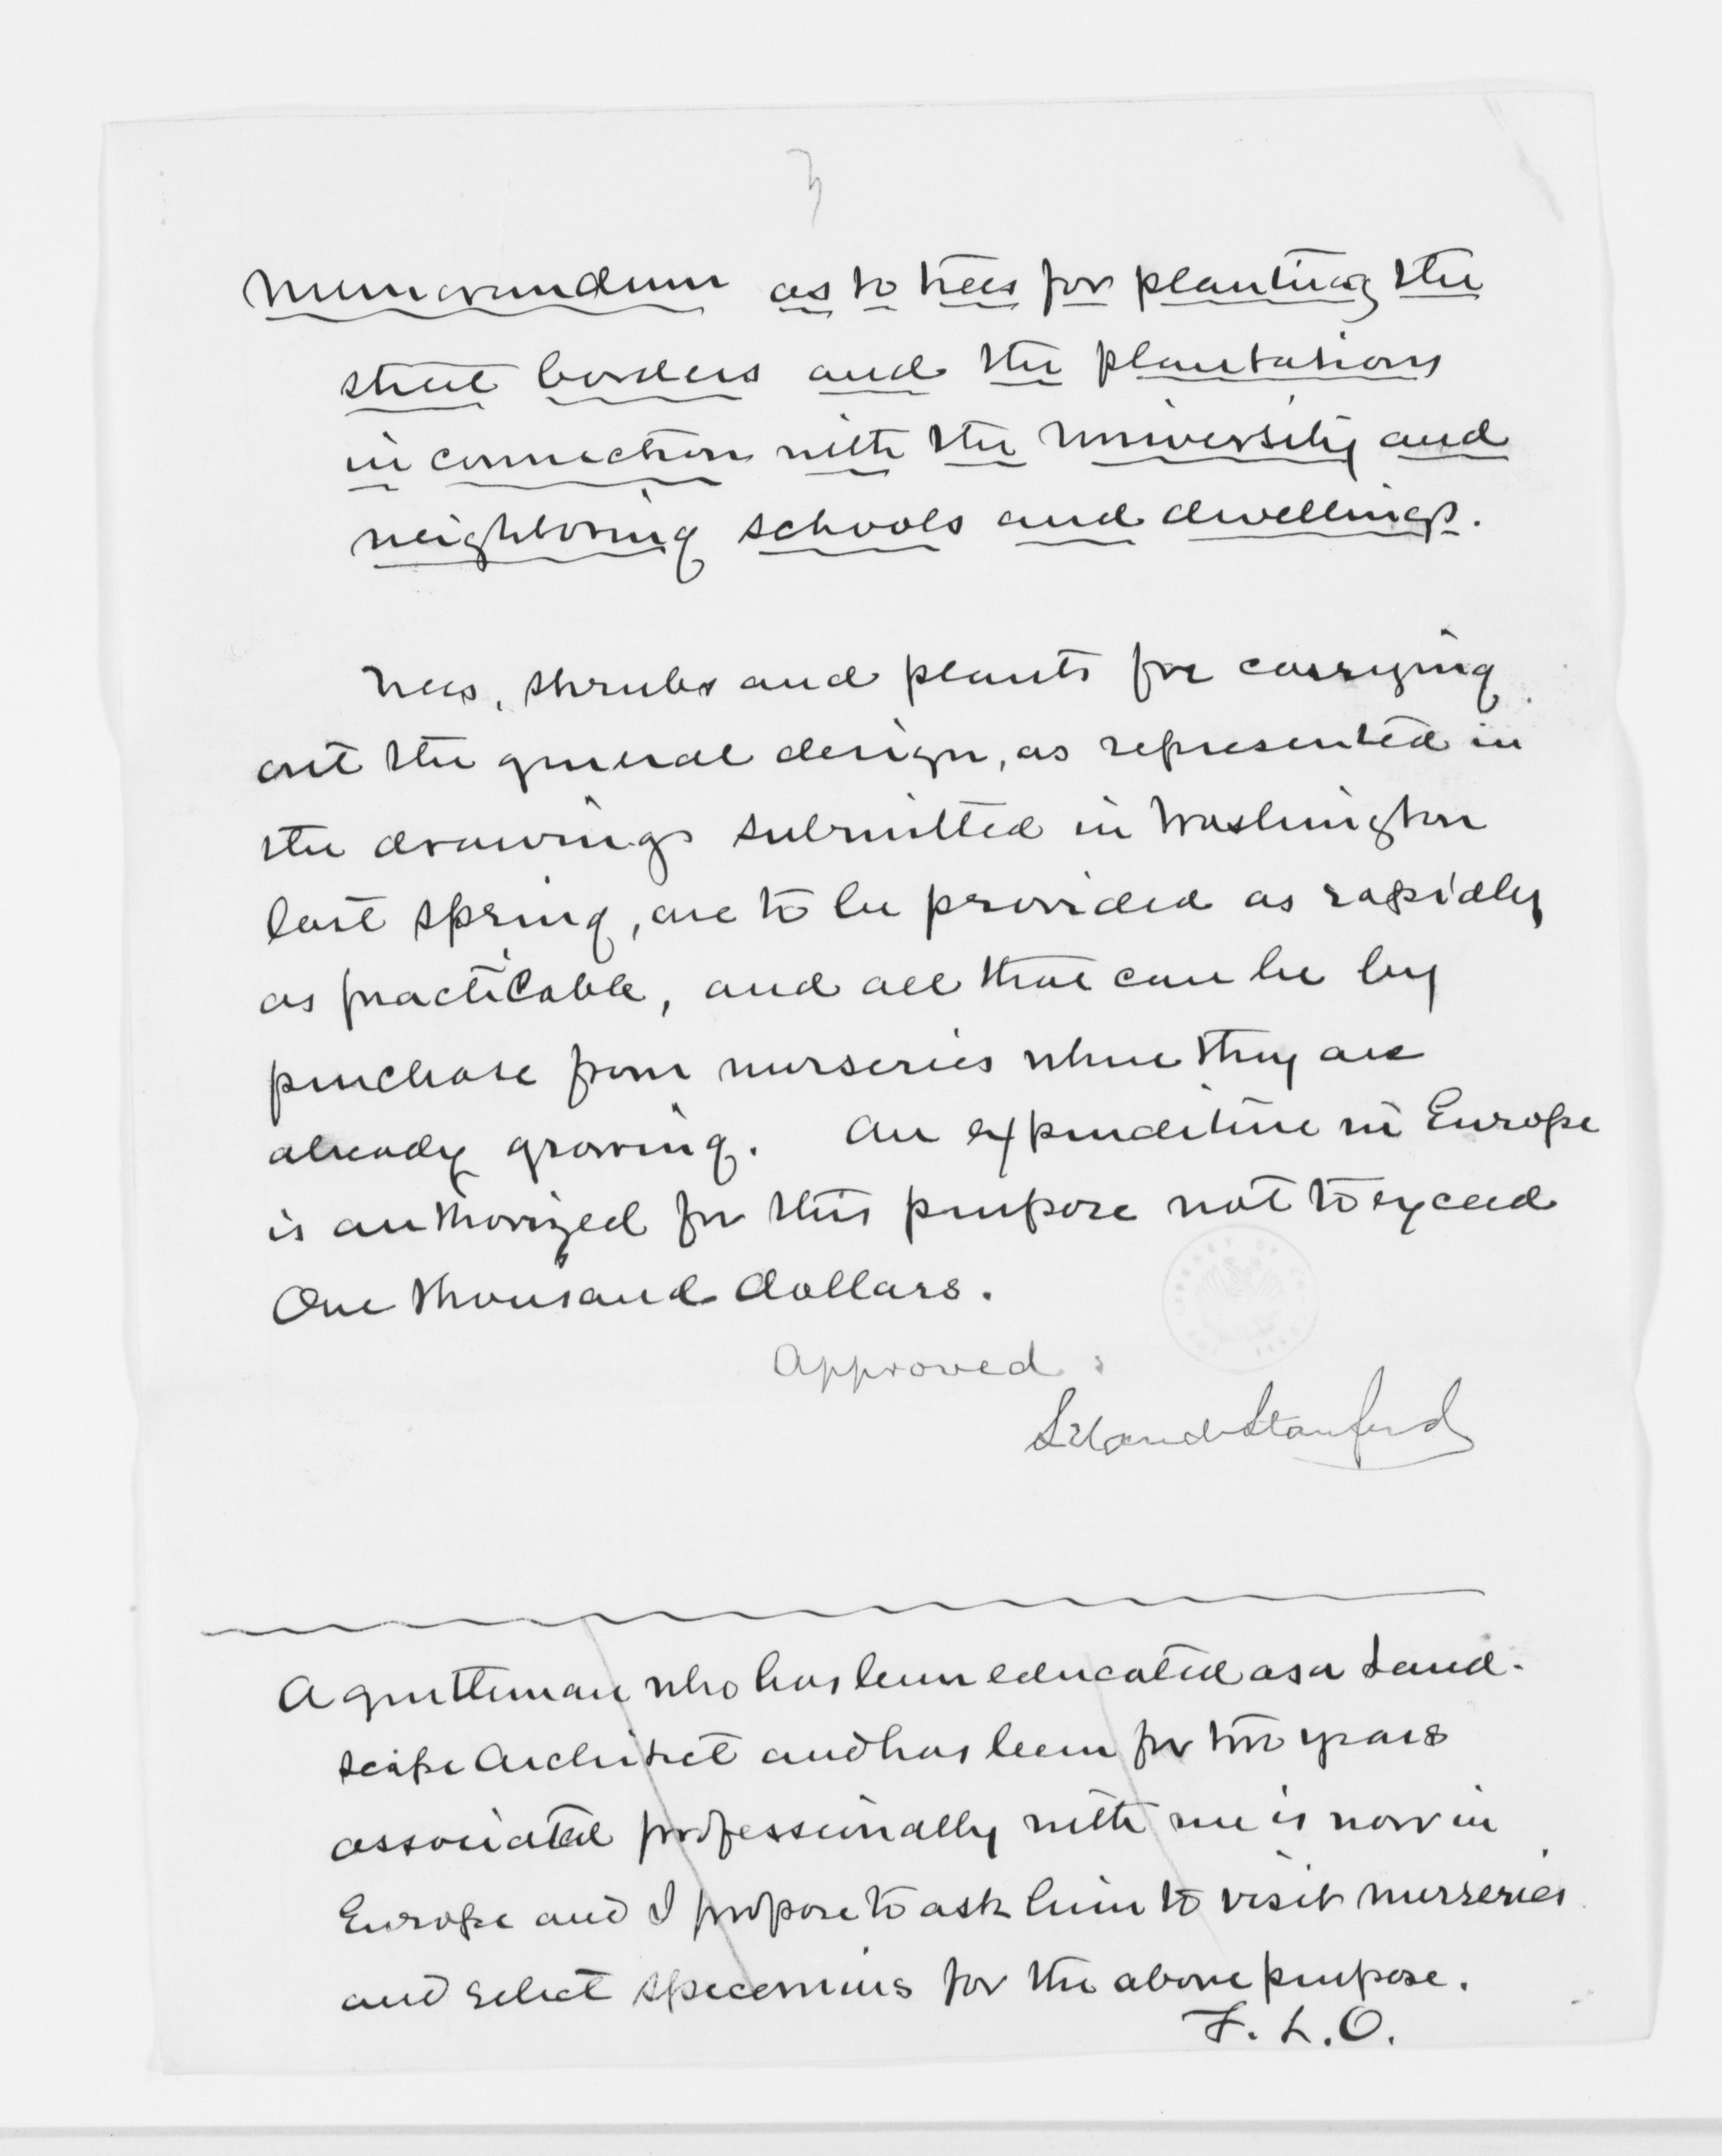 3
Memorandum as to trees for planting the
street borders and the plantations
in connection with the University and
neighboring schools and dwellings.
Trees, shrubs and plants for carrying
out the general design, as represented in
the drawings submitted in Washington
last spring, are to be provided as rapidly
as practicable, and all that can be by
purchase from nurseries where they are
already growing. An expenditure in Europe
is authorized for this purpose not to exceed
One thousand dollars.
Approved:
Leland Stanford
A gentleman who has been educated as a Land-
scape Architect and has been for two years
associated professionally with me is now in
Europe and I propose to ask him to visit nurseries
and select specimins for the above purpose.
F. L. O.